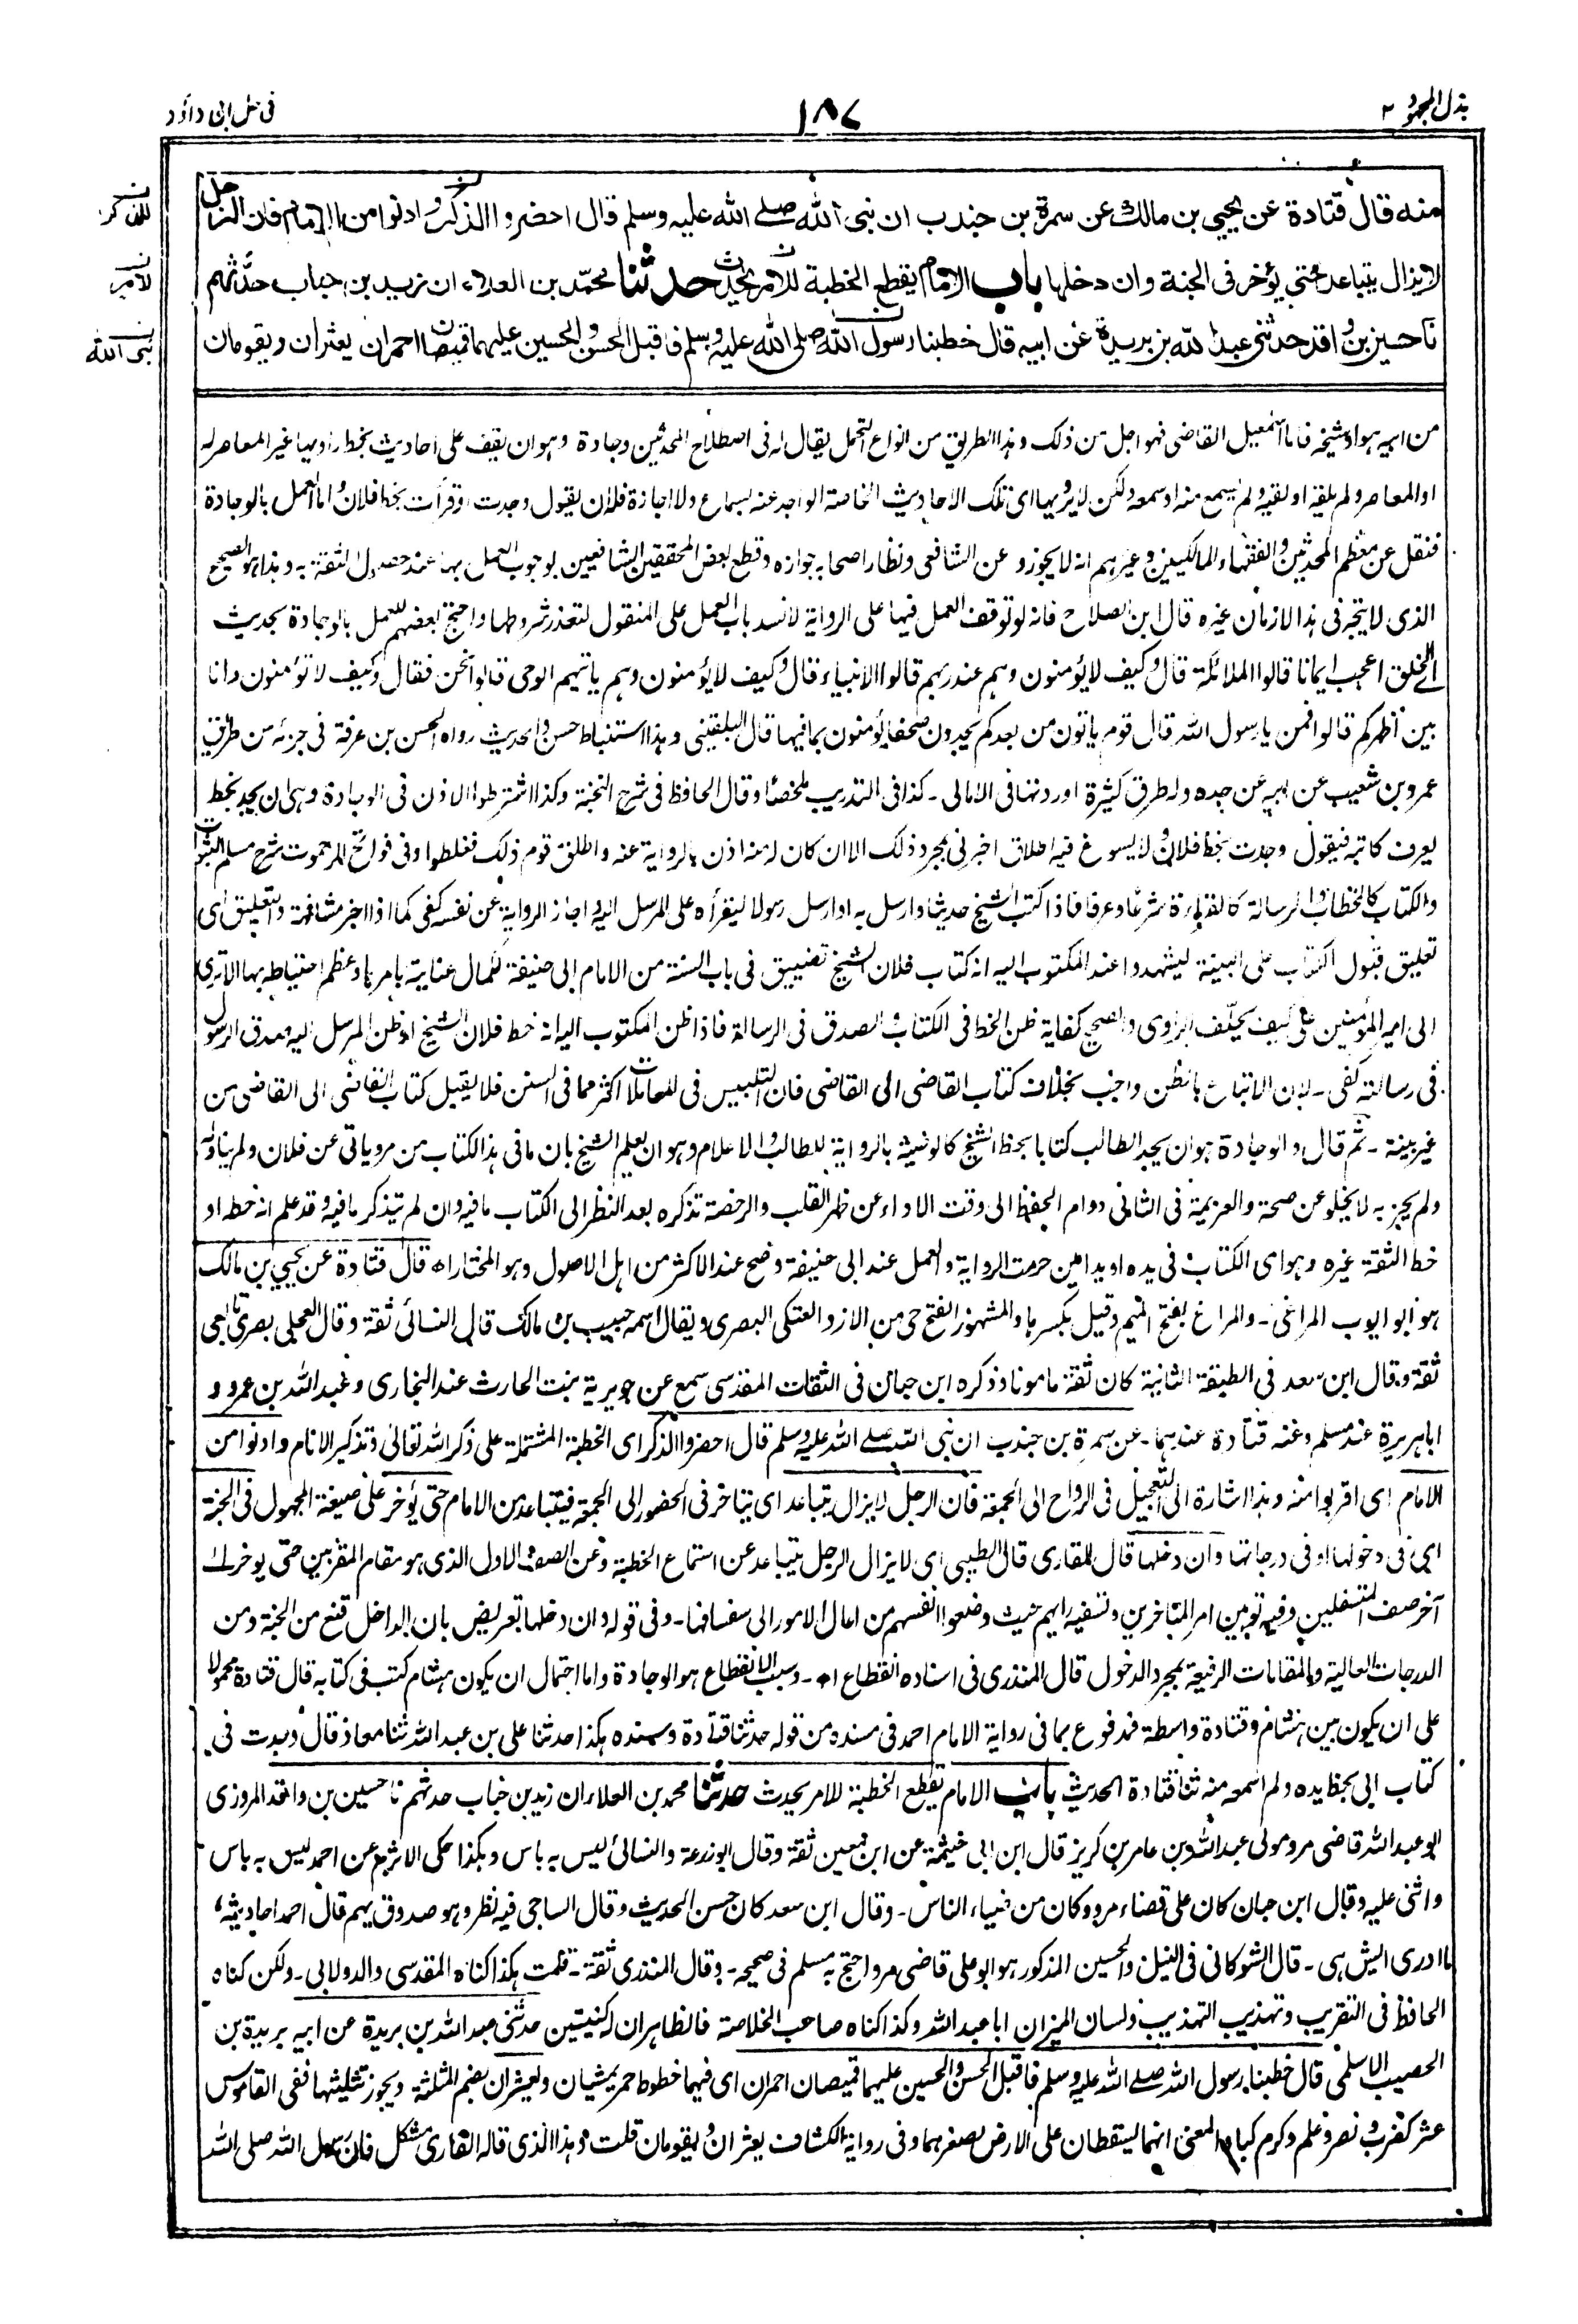 بذل المجهود ٢
١٨٧
في حل ابى داؤد
منه قال قتادة عن يحيى بن مالك عن سمرة بن جندب ان نبى الله صلى الله عليه وسلم قال احضروا الذكر وادنوا من الامام فان الرجل
لايزال يتباعد حتى يؤخر فى الجنة وان دخلها باب الامام يقطع الخطبة للامر يحدث حدثنا محمد بن العلاء ان زيد بن حباب حدثهم
نا حسين بن واقد حدثنى عبد الله بن بريدة عن ابيه قال خطبنا رسول الله صلى الله عليه وسلم فاقبل الحسن والحسين عليهما قميصان احمران يعثران ويقومان
للذكر
للامر
نبى الله
من ابيه هو اوشيخه فاما اسمعيل القاضى فهو اجل من ذلك وهذا الطريق من انواع التحمل يقال له فى اصطلاح المحدثين وجادة وهو ان يقف على احاديث بخط راويها غير المعاصر له
او المعاصر ولم يلقه او لقيه ولم يسمع منه او سمعه ولكن لا يرويها اى تلك الاحاديث الخاصة الواجد عنه بسماع ولا اجازة فله ان يقول وجدت او قرأت بخط فلان واما العمل بالوجادة
فنقل عن معظم المحدثين والفقهاء والمالكيين وغيرهم انه لا يجوز وعن الشافعى ونظار اصحابه جوازه وقطع بعض المحققين الشافعيين لوجوب العمل بها عند حصول الثقة به وهذا هو الصحيح
الذى لا يتجه فى هذا الازمان غيره قال ابن الصلاح فانه لو توقف العمل فيها على الرواية لانسد باب العمل على المنقول لتعذر شروطها واحتج بعضهم للعمل بالوجادة بحديث
اى الخلق اعجب ايمانا قالوا الملائكة قال وكيف لا يؤمنون وهم عند ربهم قالوا الانبياء قال وكيف لا يؤمنون وهم ياتيهم الوحى قالوا نحن فقال وكيف لا تؤمنون وانا
بين اظهركم قالوا فمن يا رسول الله قال قوم ياتون من بعدكم يجدون صحفا يؤمنون بما فيها قال البلقينى وهذا استنباط حسن والحديث رواه الحسن بن عرفة فى جزئه من طريق
عمرو بن شعيب عن ابيه عن جده وله طرق كثيرة اوردتها فى الامالى ـ كذا فى التدريب ملخصا وقال الحافظ فى شرح النخبة وكذا اشترطوا الاذن فى الوجادة وهى ان يجد بخط
يعرف كاتبه فيقول وجدت بخط فلان ولا يسوغ فيه اطلاق اخبرنى بمجرد ذلك الا ان كان له منه اذن بالرواية عنه واطلق قوم ذلك فغلطوا وفى فواتح الرحموت شرح مسلم الثبوت
والكتاب كالخطاب والرسالة كالقراءة شرعا وعرفا فاذا كتب الشيخ حديثا وارسل به او ارسل رسولا ليقرأه على المرسل اليه واجاز الرواية عن نفسه كفى كما اذا اخبر مشافهة والتعليق اى
تعليق قبول الكتاب على البينة ليشهدوا عند المكتوب اليه انه كتاب فلان الشيخ تضييق فى باب السنة من الامام ابى حنيفة لكمال عنايته بامرها وعظم احتياطه بها الا ترى
الى امير المؤمنين على كيف يحلف الراوى والصحيح كفاية ظن الخط فى الكتاب والصدق فى الرسالة فاذا ظن المكتوب اليه انه خط فلان الشيخ او ظن المرسل اليه صدق الرسول
فى رسالته كفى ـ لان الاتباع بالظن واجب بخلاف كتاب القاضى الى القاضى فان التلبيس فى المعاملات اكثر مما فى السنن فلا يقبل كتاب القاضى الى القاضى من
غير بينة ـ ثم قال والوجادة هو ان يجد الطالب كتابا بخط الشيخ كالوصية بالرواية للطالب والاعلام وهو ان يعلم الشيخ بان ما فى هذا الكتاب من مروياتى عن فلان ولم يناوله
ولم يجز به لا يخلو عن صحة والعزيمة فى الثانى دوام الحفظ الى وقت الاداء عن ظهر القلب والرخصة تذكره بعد النظر الى الكتاب مافيه وان لم يتذكر ما فيه وقد علم انه خطه او
خط الثقة غيره وهو اى الكتاب فى يده او يد امين حرمت الرواية والعمل عند ابى حنيفة وصح عند الاكثر من اهل الاصول وهو المختار اه قال قتادة عن يحيى بن مالك
هو ابو ايوب المراغى ـ والمراغ بفتح الميم وقيل بكسرها والمشهور الفتح حى من الازد العتكى البصرى ويقال اسمه حبيب بن مالك قال النسائى ثقة وقال العجلى بصرى تابعى
ثقة وقال ابن سعد فى الطبقة الثانية كان ثقة مامونا وذكره ابن حبان فى الثقات المقدسى سمع عن جويرية بنت الحارث عند البخارى وعبد الله بن عمرو و
ابا هريرة عند مسلم وعنه قتادة عندهما ـ عن سمرة بن جندب ان نبى الله صلى الله عليه وسلم قال احضروا الذكر اى الخطبة المشتملة على ذكر الله تعالى وتذكير الانام وادنوا من
الامام اى اقربوا منه وهذا اشارة الى التعجيل فى الرواح الى الجمعة فان الرجل لا يزال يتباعد اى يتاخر فى الحضور الى الجمعة فيتباعد من الامام حتى يؤخر على صيغة المجهول فى الجنة
اى فى دخولها او فى درجاتها وان دخلها قال القارى قال الطيبى اى لا يزال الرجل يتباعد عن استماع الخطبة وعن الصف الاول الذى هو مقام المقربين حتى يوخر الى
آخر صف المتسفلين وفيه توهين امر المتاخرين وتسفيه رايهم حيث وضعوا انفسهم من اعالى الامور الى سفسافها ـ وفى قوله وان دخلها تعريض بان الداخل قنع من الجنة ومن
الدرجات العالية والمقامات الرفيعة بمجرد الدخول قال المنذرى فى اسناده انقطاع اه ـ وسبب الانقطاع هو الوجادة واما احتمال ان يكون هشام كتب فى كتابه قال قتادة محمولا
على ان يكون بين هشام وقتادة واسطة فمدفوع بما فى رواية الامام احمد فى مسنده من قوله حدثنا قتادة وسنده هكذا حدثنا على بن عبد الله ثنا معاذ قال وجدت فى
كتاب ابى بخط يده ولم اسمعه منه ثنا قتادة الحديث باب الامام يقطع الخطبة للامر يحدث حدثنا محمد بن العلاء ان زيد بن حباب حدثهم نا حسين بن واقد المروزى
ابو عبد الله قاضى مرو مولى عبد الله بن عامر بن كريز قال ابن ابى خيثمة عن ابن معين ثقة وقال ابو زرعة والنسائى ليس به باس وهكذا حكى الاثرم عن احمد ليس به باس
واثنى عليه وقال ابن حبان كان على قضاء مرو وكان من خيار الناس ـ وقال ابن سعد كان حسن الحديث وقال الساجى فيه نظر وهو صدوق يهم قال احمد احاديثه
ما ادرى ايش هى ـ قال الشوكانى فى النيل والحسين المذكور هو ابو على قاضى مرو احتج به مسلم فى صحيحه ـ وقال المنذرى ثقة ـ قلت هكذا كناه المقدسى والدولابى ـ ولكن كناه
الحافظ فى التقريب وتهذيب التهذيب ولسان الميزان ابا عبد الله وكذا كناه صاحب الخلاصة فالظاهر ان له كنيتين حدثنى عبد الله بن بريدة عن ابيه بريدة بن
الحصيب الاسلمى قال خطبنا رسول الله صلى الله عليه وسلم فاقبل الحسن والحسين عليهما قميصان احمران اى فيهما خطوط حمر يمشيان ويعثران بضم المثلثة ويجوز تثليثها ففى القاموس
عثر كضرب ونصر وعلم وكرم كبا والمعنى انهما يسقطان على الارض لصغرهما وفى رواية الكشاف يعثران ويقومان قلت وهذا الذى قاله القارى مشكل فان رسول الله صلى الله